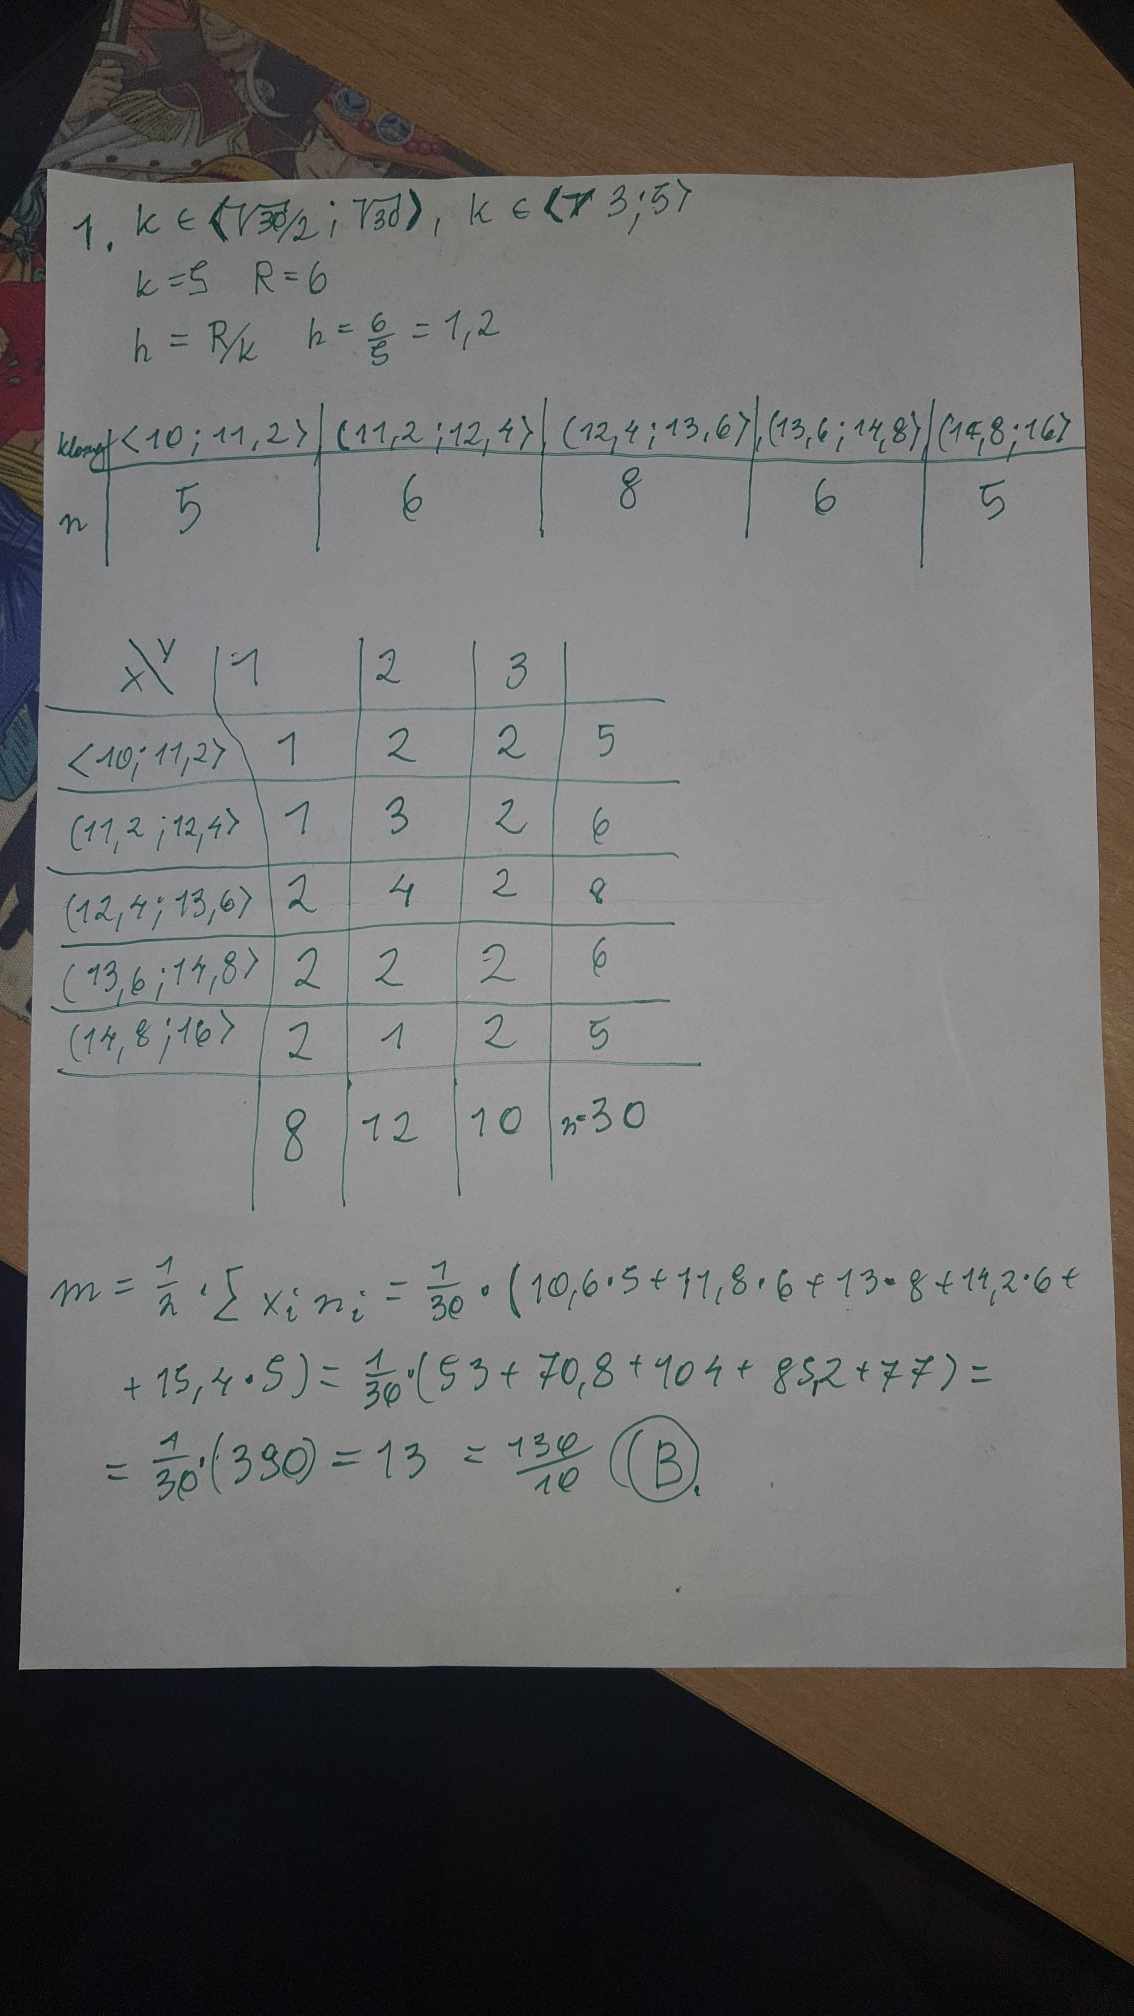 1. k ∈ ⟨√30/2 ; √30⟩, k ∈ ⟨ 3;5⟩
k=5 R=6
h = R/k h = 6/5 = 1,2
<10 ; 11,2> (11,2 ; 12,4> (12,4 ; 13,6> (13,6 ; 14,8> (14,8 ; 16>
n 5 6 8 6 5
X\Y 1 2 3
<10; 11,2> 1 2 2 5
(11,2 ; 12,4> 1 3 2 6
(12,4; 13,6> 2 4 2 8
(13,6 ; 14,8> 2 2 2 6
(14,8 ; 16> 2 1 2 5
8 12 10 n=30
m = 1/n · Σ xi ni = 1/30 · (10,6·5+11,8·6+13·8+14,2·6+
+15,4·5) = 1/30·(53+70,8+104+85,2+77) =
= 1/30·(390) = 13 = 130/10 (B).